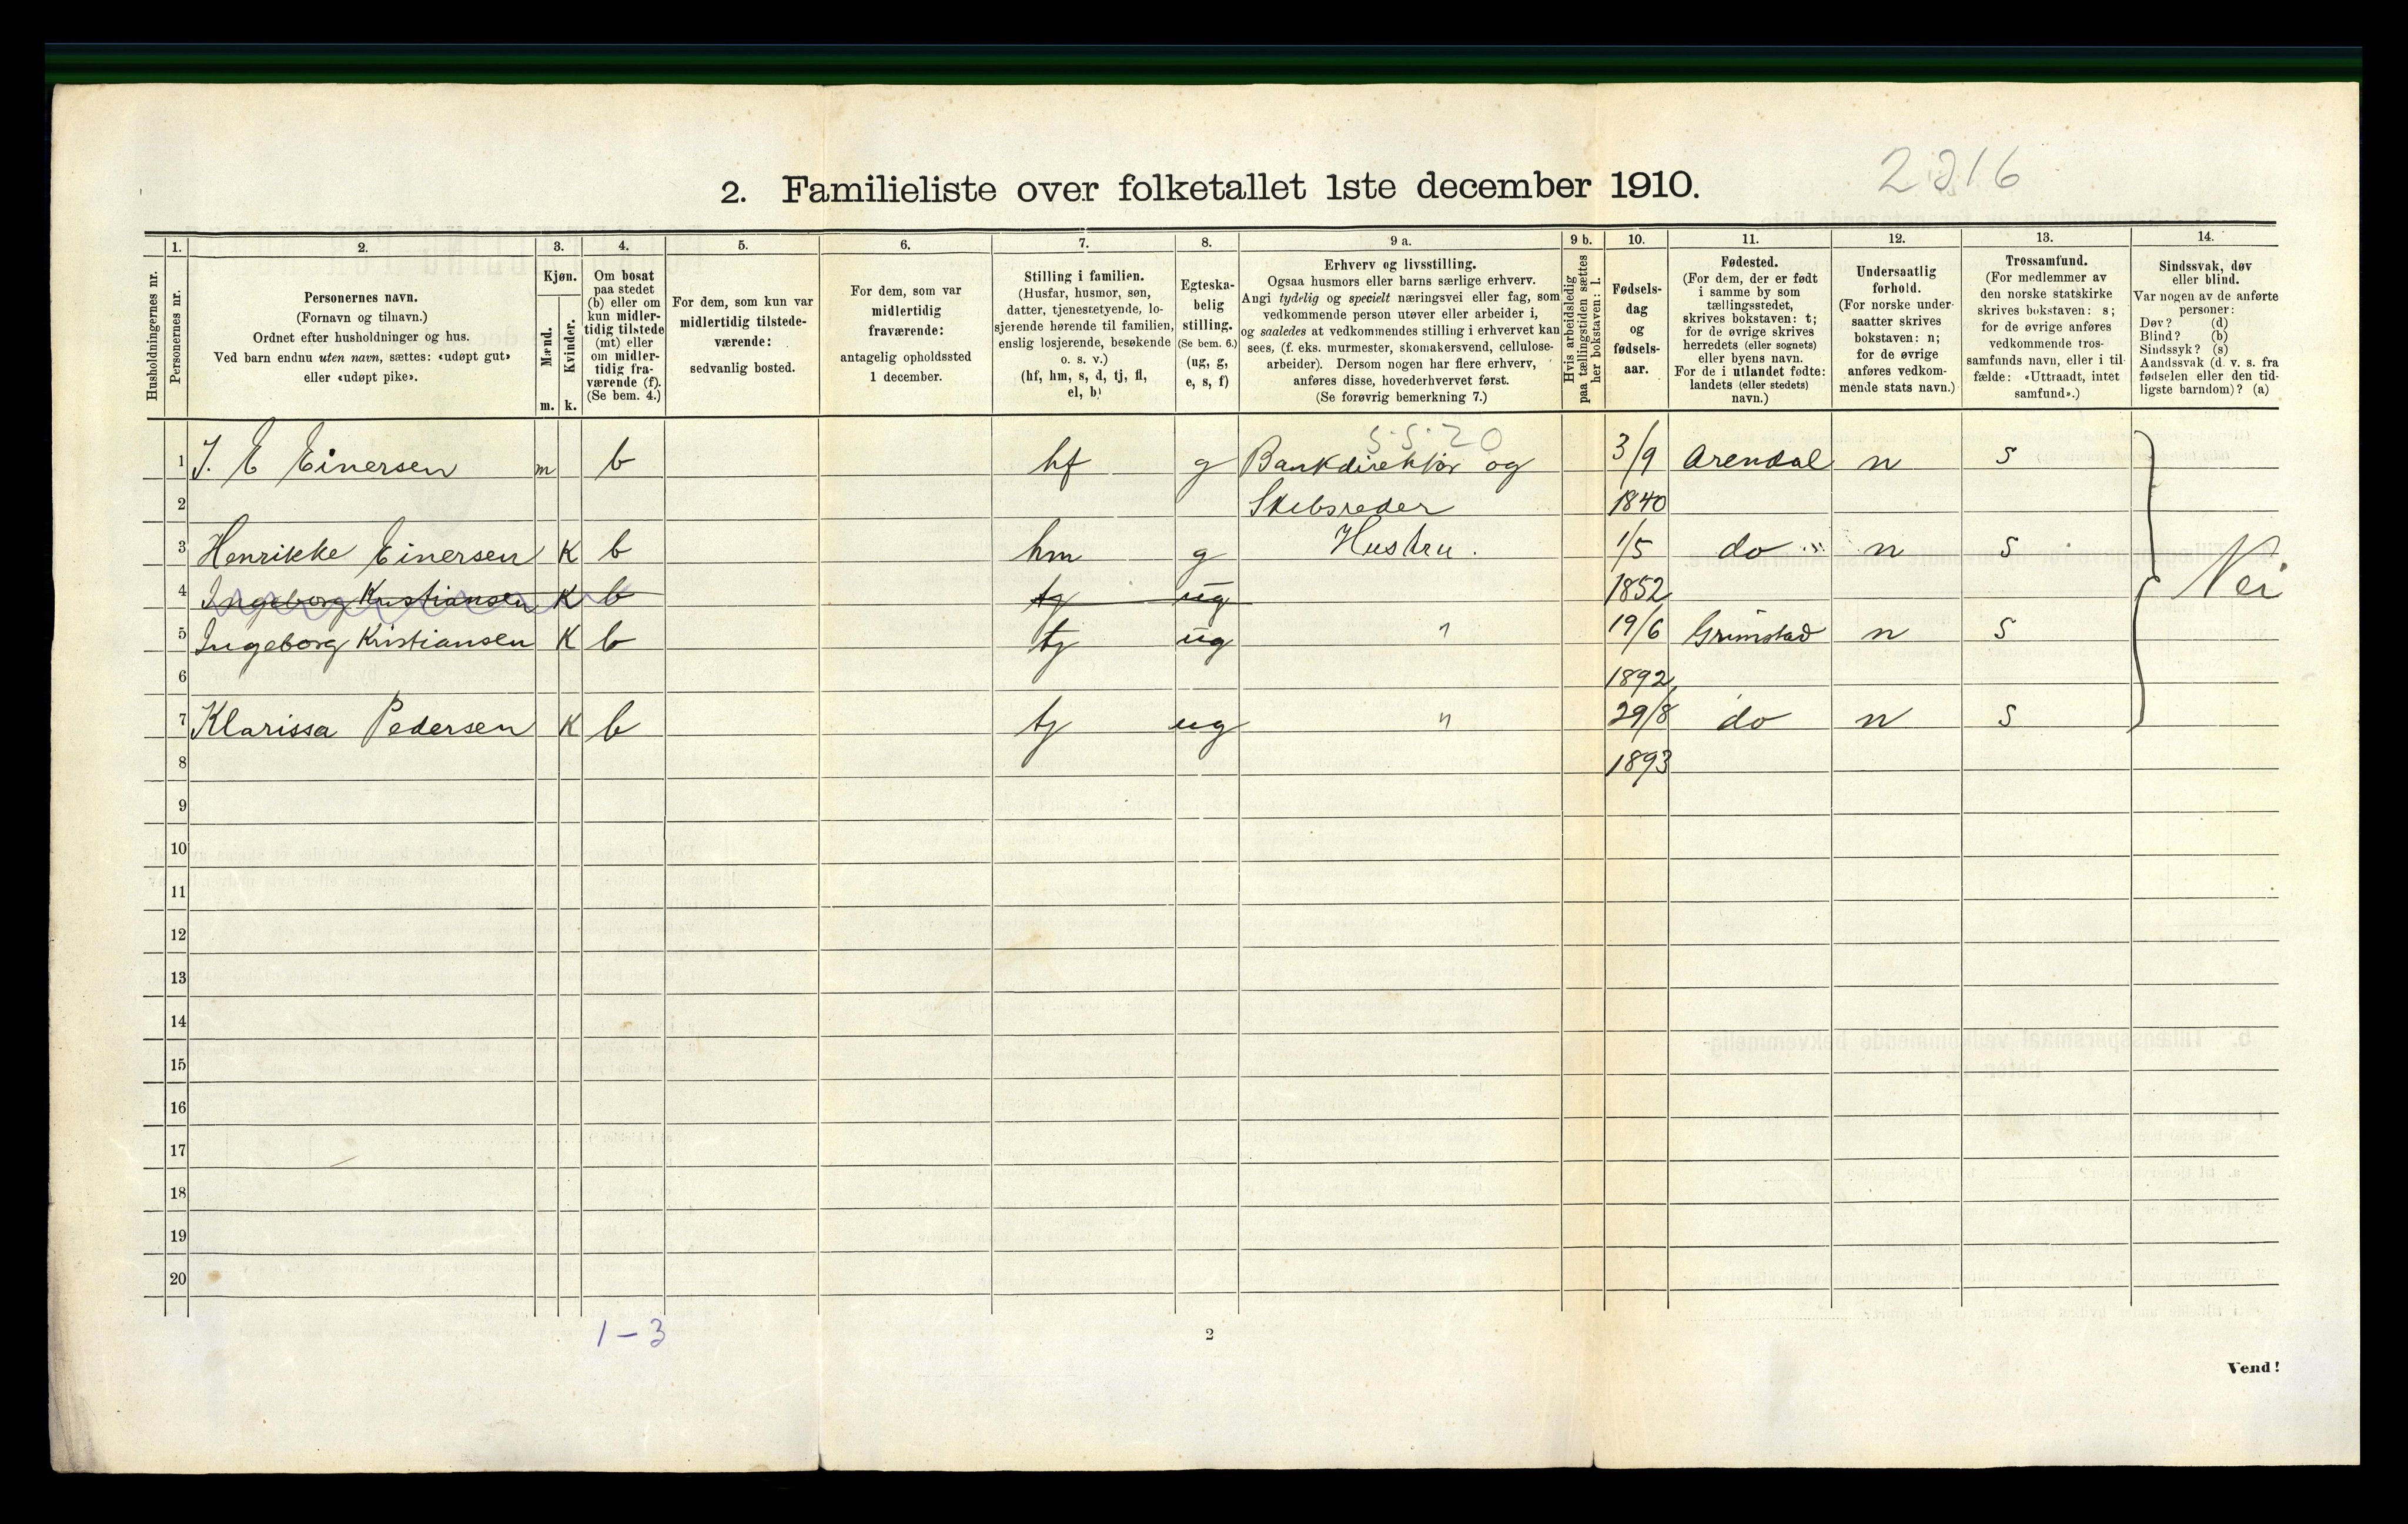 2216
2. Familieliste over folketallet 1ste december 1910.
Husholdningernes nr.
1.
Personernes nr.
2.
Personernes navn.
(Fornavn og tilnavn.)
Ordnet efter husholdninger og hus.
Ved barn endnu uten navn, sættes: «udøpt gut»
eller «udøpt pike».
3.
Kjøn.
Mænd.
Kvinder.
m. k.
4.
Om bosat
paa stedet
(b) eller om
kun midler-
tidig tilstede
(mt) eller
om midler-
tidig fra-
værende (f).
(Se bem. 4.)
5.
For dem, som kun var
midlertidig tilstede-
værende:
sedvanlig bosted.
6.
For dem, som var
midlertidig
fraværende:
antagelig opholdssted
1 december.
7.
Stilling i familien.
(Husfar, husmor, søn,
datter, tjenestetyende, lo-
sjerende hørende til familien,
enslig losjerende, besøkende
o. s. v.)
(hf, hm, s, d, tj, fl,
el, b)
8.
Egteska-
belig
stilling.
(Se bem. 6.)
(ug, g,
e, s, f)
9 a.
Erhverv og livsstilling.
Ogsaa husmors eller barns særlige erhverv.
Angi tydelig og specielt næringsvei eller fag, som
vedkommende person utøver eller arbeider i,
og saaledes at vedkommendes stilling i erhvervet kan
sees, (f. eks. murmester, skomakersvend, cellulose-
arbeider). Dersom nogen har flere erhverv,
anføres disse, hovederhvervet først.
(Se forøvrig bemerkning 7.)
9 b.
Hvis arbeidsledig
paa tællingstiden sættes
her bokstaven: l.
10.
Fødsels-
dag
og
fødsels-
aar.
11.
Fødested.
(For dem, der er født
i samme by som
tællingsstedet,
skrives bokstaven: t;
for de øvrige skrives
herredets (eller sognets)
eller byens navn.
For de i utlandet fødte:
landets (eller stedets)
navn.)
12.
Undersaatlig
forhold.
(For norske under-
saatter skrives
bokstaven: n;
for de øvrige
anføres vedkom-
mende stats navn.)
13.
Trossamfund.
(For medlemmer av
den norske statskirke
skrives bokstaven: s;
for de øvrige anføres
vedkommende tros-
samfunds navn, eller i til-
fælde: «Uttraadt, intet
samfund».)
14.
Sindssvak, døv
eller blind.
Var nogen av de anførte
personer:
Døv? (d)
Blind? (b)
Sindssyk? (s)
Aandssvak (d. v. s. fra
fødselen eller den tid-
ligste barndom)? (a)
5.5.20
1 J. E Einersen m b hf g Bankdirektör og 3/9 Arendal n S
2 Skibsreder 1840
3 Henrikke Einersen K b hm g Hustru. 1/5 do n S
Nei
4 Ingeborg Kristiansen K b tj ug 1852
5 Ingeborg Kristiansen K b tj ug " 19/6 Grimstad n S
6 1892
7 Klarissa Pedersen K b tj ug " 29/8 do n S
8 1893
9
10
11
12
13
14
15
16
17
18
19
20
1 – 3
2
Vend!